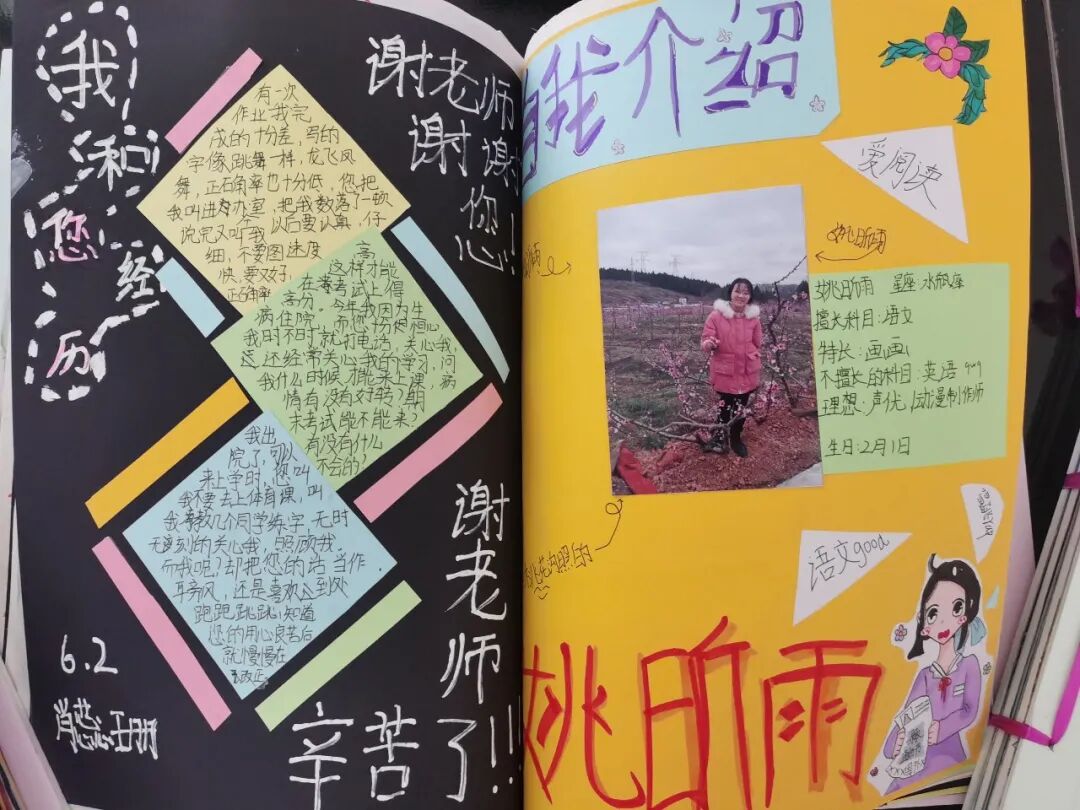 我
和
您
经
历
有一次
作业我完
成的十分差，写的
字像跳舞一样，龙飞凤
舞，正确率也十分低，您把
我叫进办公室，把我数落了一顿
说完又叫我以后要认真，仔
细，不要图速度
快，要又对好，
正确率
高，
这样才能
在考试上得
高分。今年我因为生
病住院，而您十分担心
我时不时就打电话，关心我，
还经常关心我的学习，问
我什么时候才能来上课，病
情有没有好转？期
末考试能不能来？
有没有什么
不会的？
我出
院了，可以
来上学时，您叫
我不要去上体育课，叫
我教几个同学练字，无时
无刻的关心我，照顾我。
而我呢？却把您的话当作
耳旁风，还是喜欢到处
跑跑跳跳，知道
您的用心良苦后
就慢慢在
改正。
6.2
谢老师
谢谢
您！
谢
老
师
辛苦了！！！
自我介绍
爱阅读
姚昕雨
姚昕雨 星座：水瓶座
擅长科目：语文
特长：画画
不擅长的科目：英语
理想：声优/动漫制作师
生日：2月1日
语文good
姚昕雨